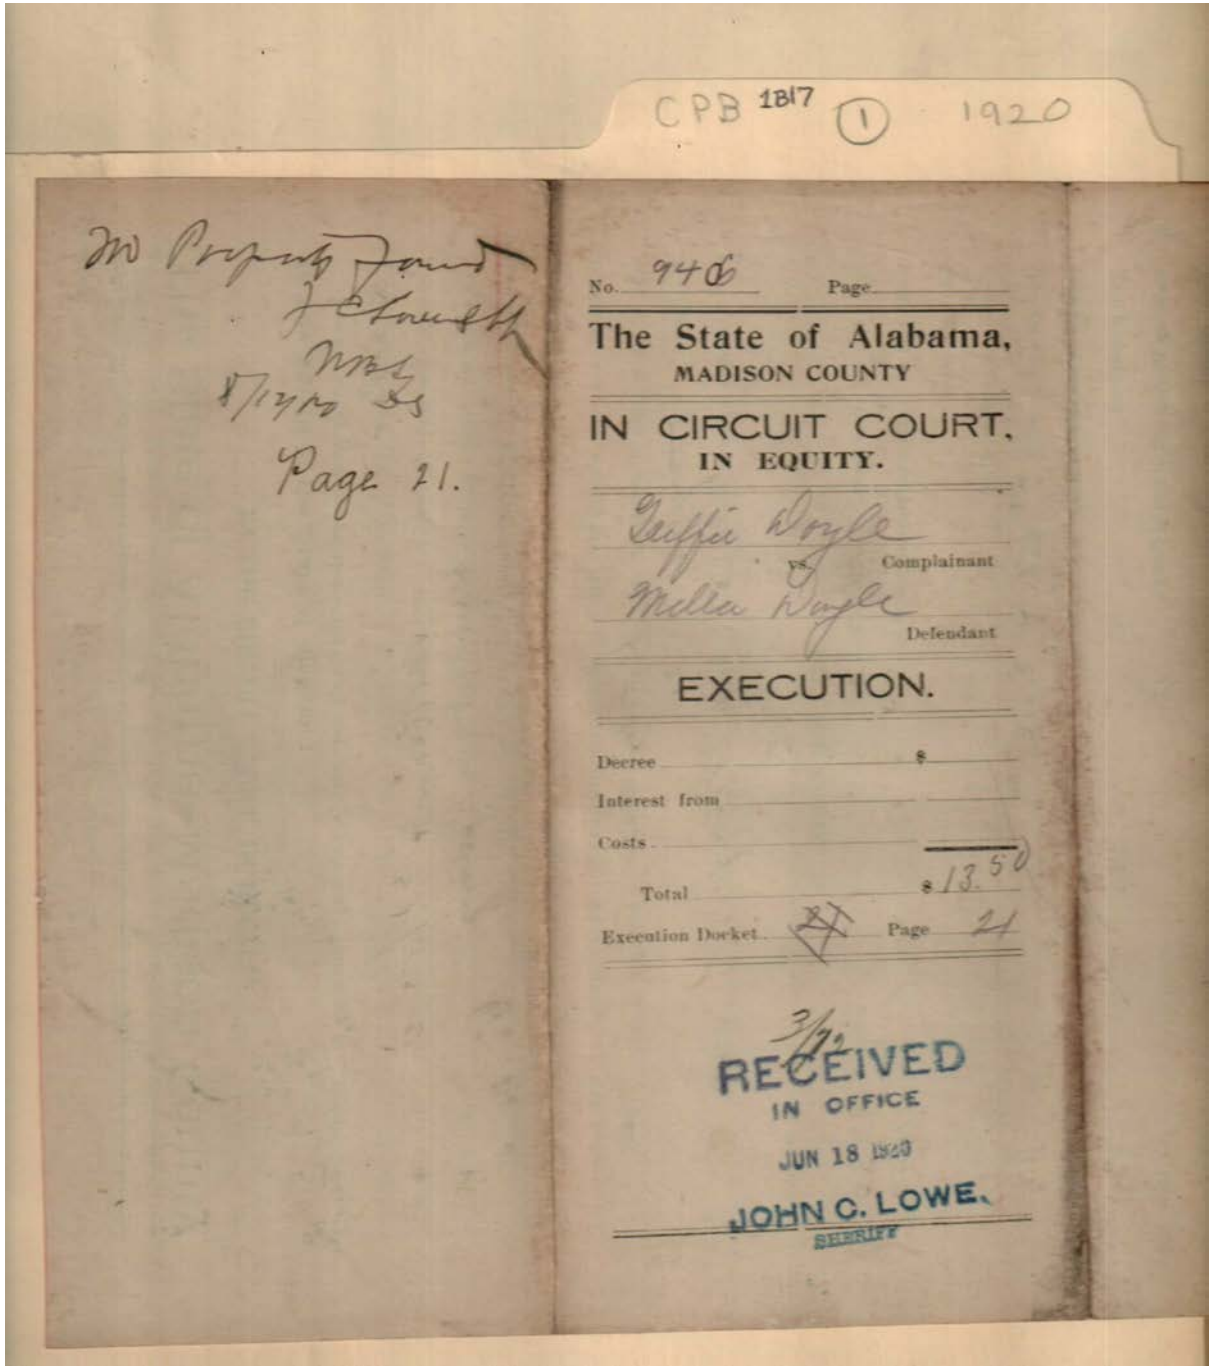 CPB 1817 1 1920
No Property Found
J C Lowe Sh
8/12/20 DS
Page 21.
No. 940 Page
The State of Alabama,
MADISON COUNTY
IN CIRCUIT COURT,
IN EQUITY.
Doyle
vs. Complainant
Doyle
Defendant
EXECUTION.
Decree $
Interest from
Costs
Total $ 13.50
Execution Docket Page 21
RECEIVED
IN OFFICE
JUN 18 1920
JOHN C. LOWE.
SHERIFF